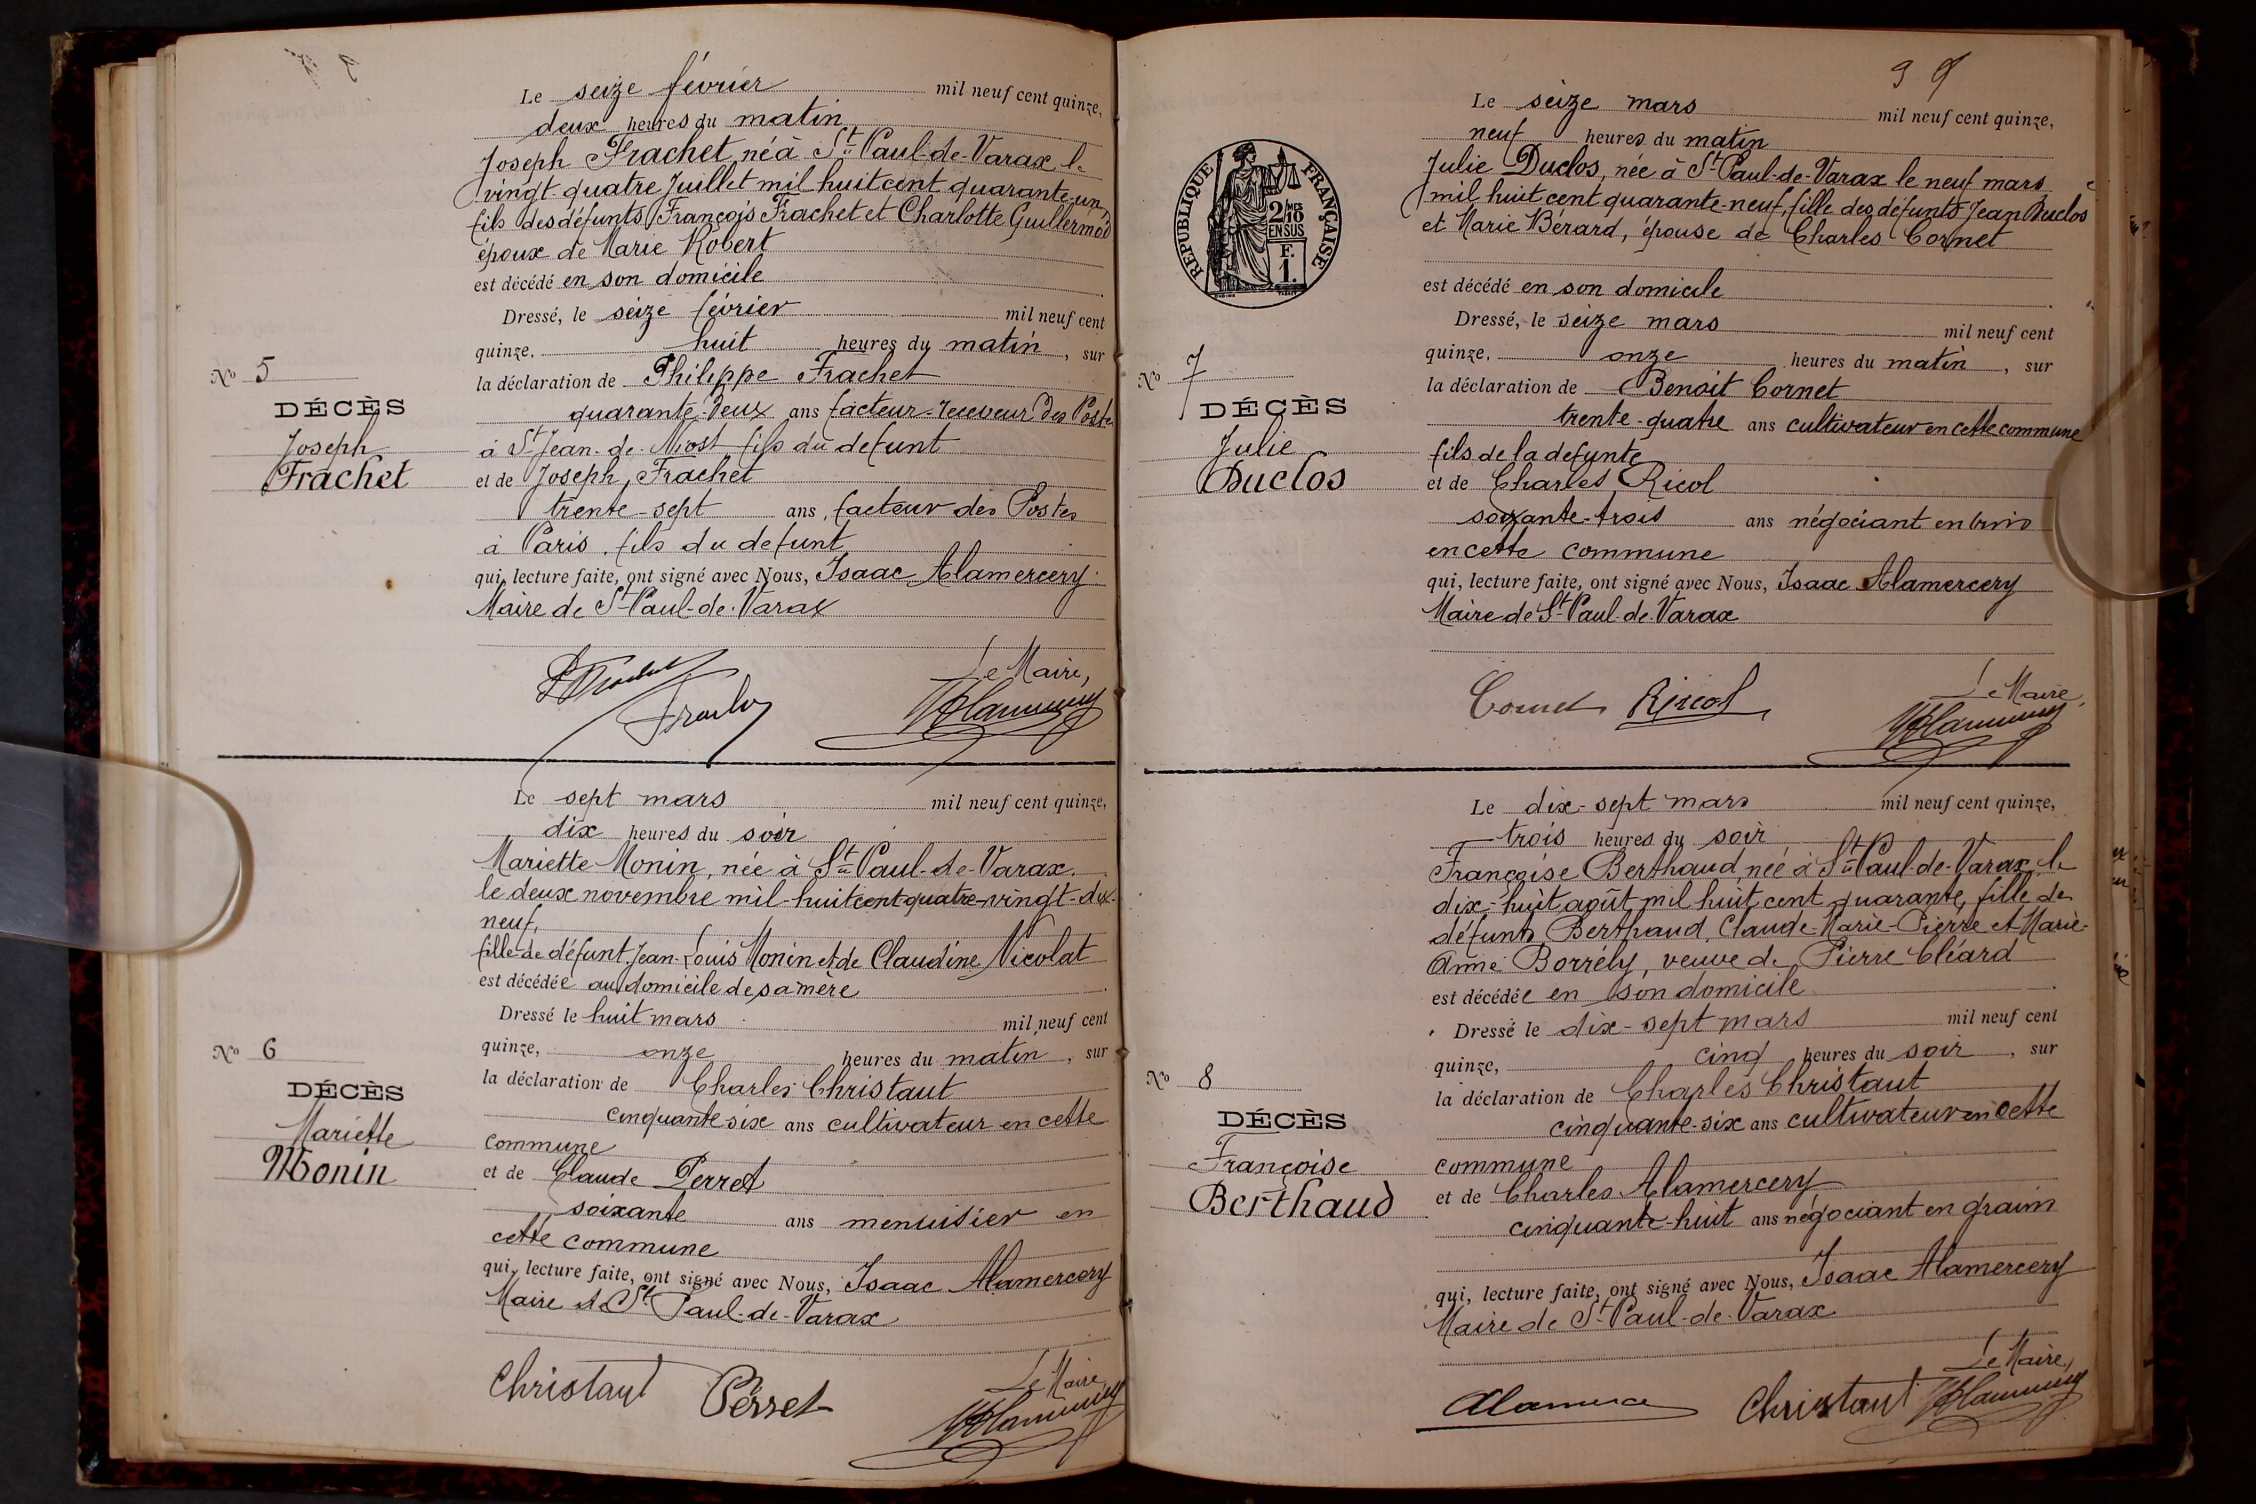 Le seize février mil neuf cent quinze,
deux heures du matin
Joseph Frachet, né à St Paul-de-Varax le
vingt-quatre Juillet mil huit cent quarante-un,
fils des défunts François Frachet et Charlotte Guillermod
époux de Marie Robert
est décédé en son domicile
Dressé, le seize février mil neuf cent
quinze, huit heures du matin, sur
la déclaration de Philippe Frachet
quarante-deux ans facteur-receveur des Postes
à St Jean-de-Niost fils du defunt
et de Joseph Frachet
trente-sept ans, facteur des Postes
à Paris, fils du defunt
qui, lecture faite, ont signé avec Nous, Isaac Alamercery
Maire de St Paul-de-Varax
Le Maire,
No 5
DÉCÈS
Joseph
Frachet
Le sept mars mil neuf cent quinze,
dix heures du soir
Mariette Monin, née à St Paul-de-Varax
le deux novembre mil-huit cent-quatre-vingt-dix-
neuf,
fille de défunt Jean-Louis Monin et de Claudine Nicolat
est décédée au domicile de sa mère
Dressé le huit mars mil neuf cent
quinze, onze heures du matin, sur
la déclaration de Charles Christaut
cinquante-six ans cultivateur en cette
commune
et de Claude Perret
soixante ans menuisier en
cette commune
qui, lecture faite, ont signé avec Nous, Isaac Alamercery
Maire de St Paul-de-Varax
Christaut Perret
Le Maire,
No 6
DÉCÈS
Mariette
Monin
9
Le seize mars mil neuf cent quinze,
neuf heures du matin
Julie Duclos, née à St Paul-de-Varax le neuf mars
mil huit cent quarante-neuf, fille des défunts Jean Duclos
et Marie Bérard, épouse de Charles Cornet
est décédé en son domicile
Dressé, le seize mars mil neuf cent
quinze, onze heures du matin, sur
la déclaration de Benoit Cornet
trente-quatre ans cultivateur en cette commune
fils de la defunte
et de Charles Ricol
soixante-trois ans négociant en
en cette commune
qui, lecture faite, ont signé avec Nous, Isaac Alamercery
Maire de St Paul-de-Varax
Cornet Ricol
Le Maire,
RÉPUBLIQUE FRANÇAISE
2/10MES
EN SUS
F.
1.
No 7
DÉCÈS
Julie
Duclos
Le dix-sept mars mil neuf cent quinze,
trois heures du soir
Françoise Berthaud, née à St Paul-de-Varax, le
dix-huit août mil huit cent quarante, fille des
défunts Berthaud, Claude-Marie-Pierre et Marie-
Anne Borrély, veuve de Pierre Cléard
est décédée en son domicile
Dressé le dix-sept mars mil neuf cent
quinze, cinq heures du soir, sur
la déclaration de Charles Christaut
cinquante-six ans cultivateur en cette
commune
et de Charles Alamercery
cinquante-huit ans négociant en grains
qui, lecture faite, ont signé avec Nous, Isaac Alamercery
Maire de St Paul-de-Varax
Le Maire,
Christaut
No 8
DÉCÈS
Françoise
Berthaud